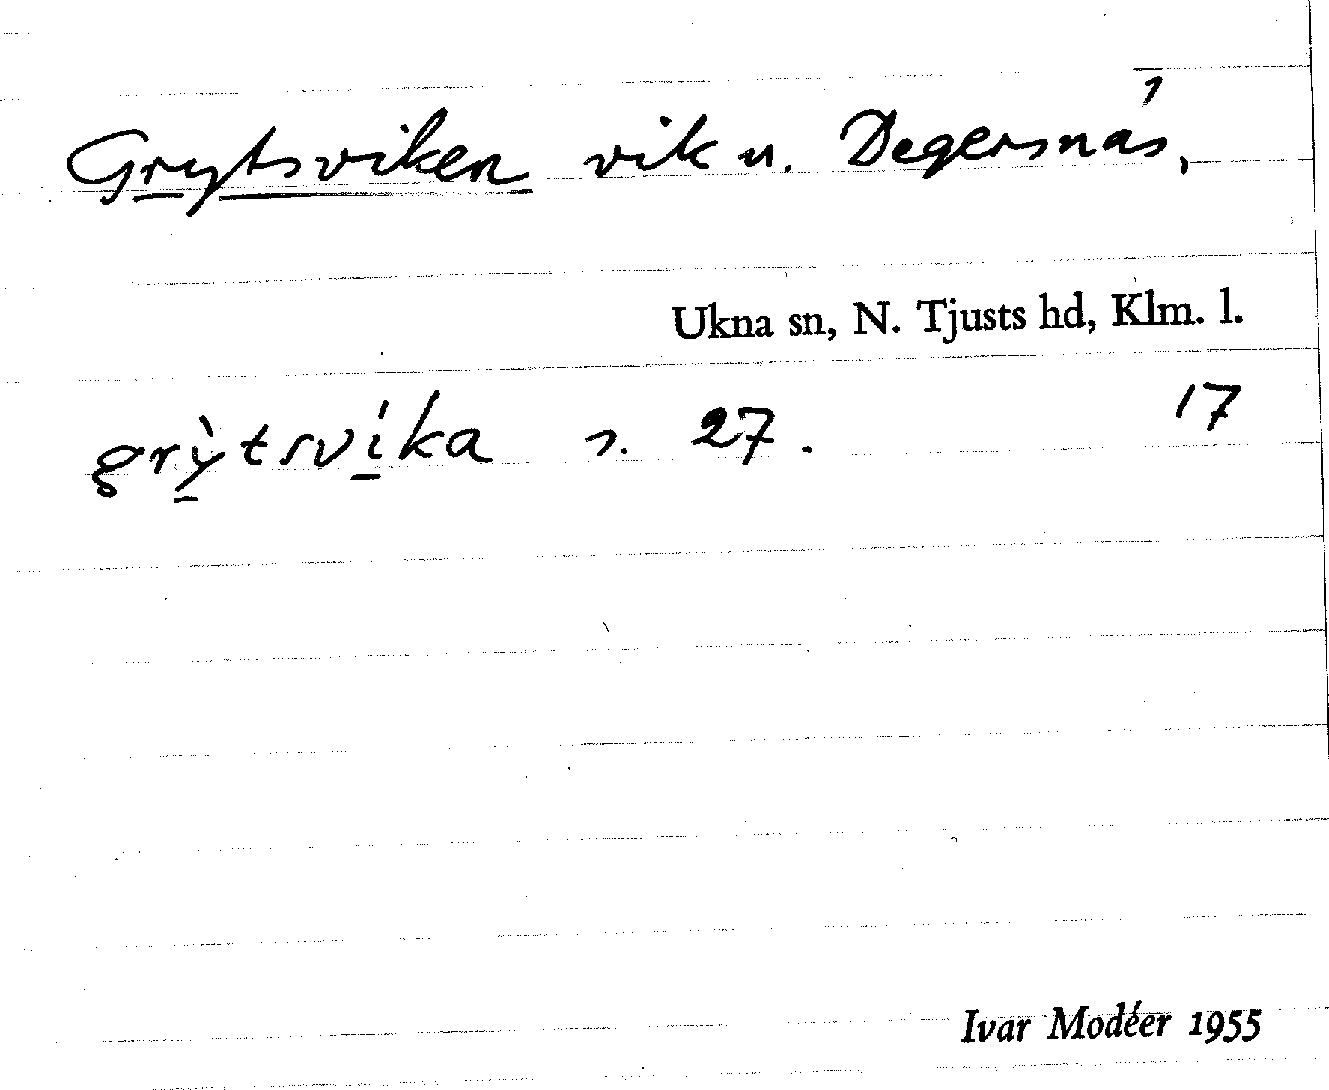 Grytsviken vik u. Degersnäs,
Ukna sn, N. Tjusts hd, Klm. l.
grỳtsvíka s. 27. 17
Ivar Modéer 1955